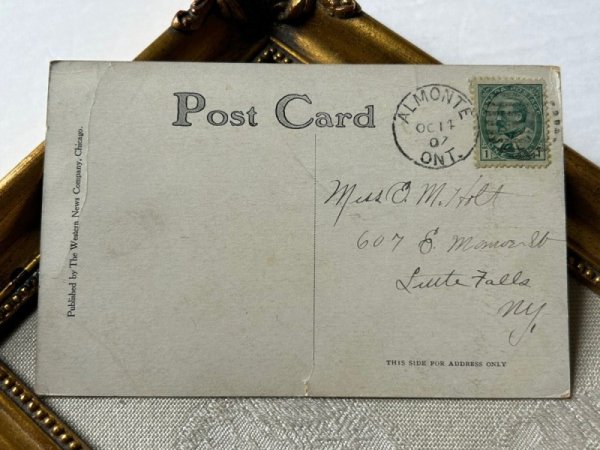 Post Card
ALMONTE
OC 14
07
ONT.
Published by The Western News Company, Chicago.
Miss E. M. Holt
607 E. Monroe St
Little Falls
NY.
THIS SIDE FOR ADDRESS ONLY